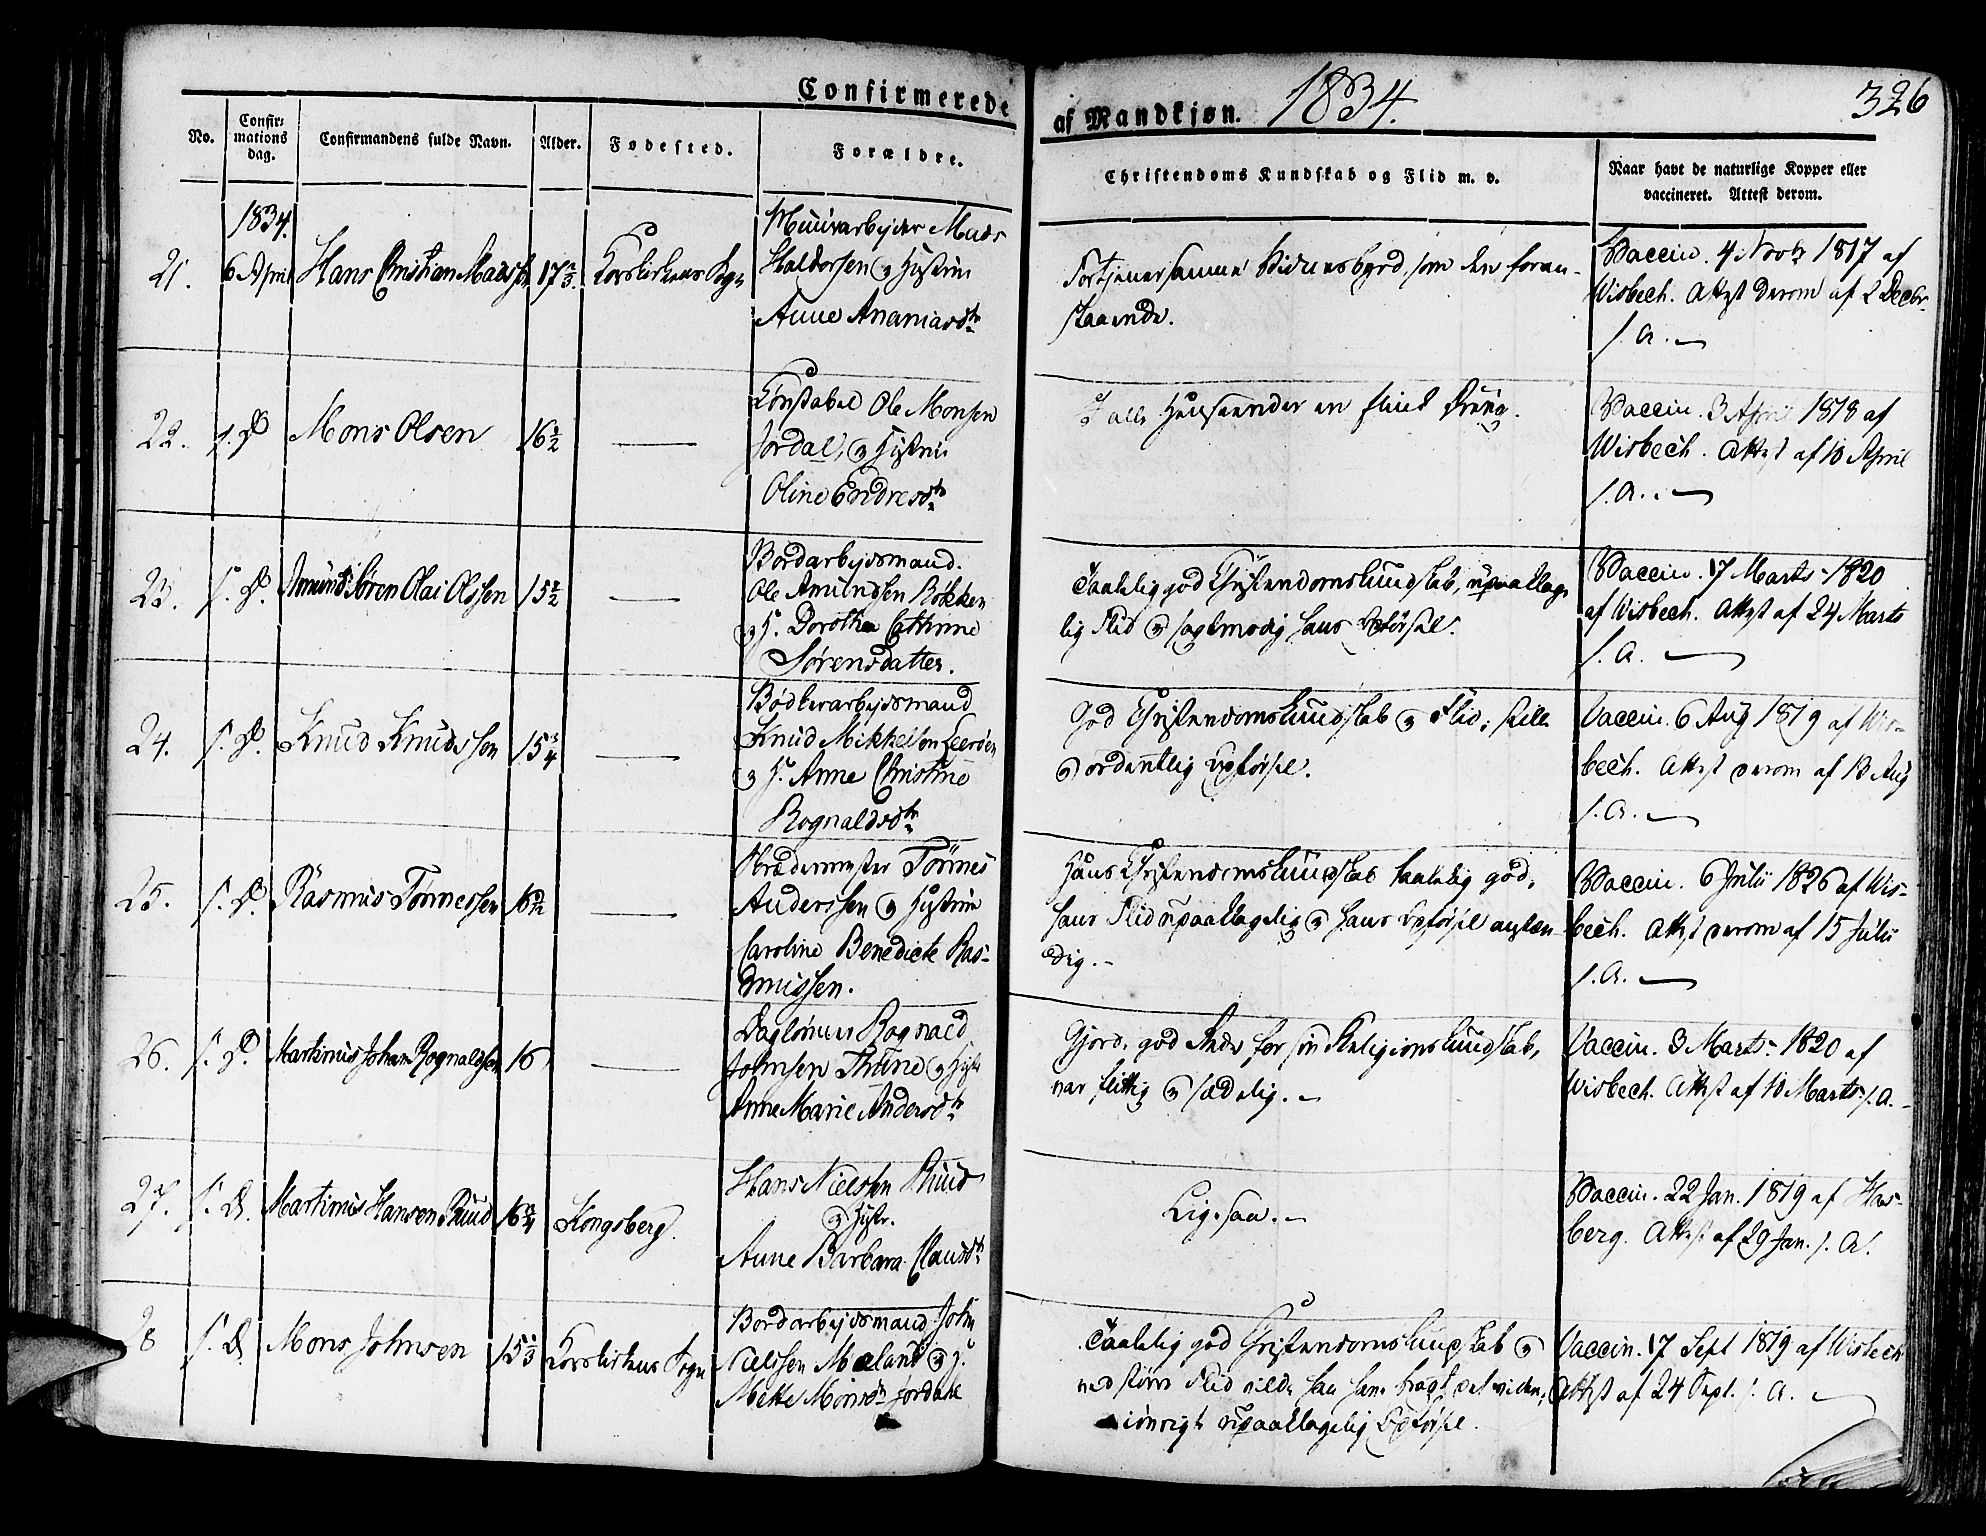 Confirmerede
af Mandkjøn. 1834. 326
No.
Confir-
mations
dag.
Confirmandens fulde Navn.
Alder.
Fødested.
Forældre.
Christendoms Kundskab og Flid m. v.
Naar havt de naturlige Kopper eller
vaccineret. Attest derom.
1834.
21. 6 April Hans Christian Madss 17 2/3. Korskirkens Sogn
Muurarbejder Mads
Haldorsen og Hustrue
Anne Ananiasdtr
Fortjener samme Vidnesbyrd, som den foran-
staaende.
Vaccin. 4 Novbr 1817 af
Wisbech. Attest derom af 2 Decbr.
s. A. —
22. s. D Mons Olsen 16 1/2 —
Constabel Ole Monsen
Jordal, og Hustrue
Oline Endresdtr
I alle Henseender en flink Dreng.
Vaccin. 3 April 1818 af
Wisbech. Attest af 10 April
s. A. —
23. s. D. Amund Søren Olai Olssen 15 1/2 —
Bordarbejdsmand.
Ole Amundsen Røkken
og H. Dorothea Cathrine
Sørensdatter.
Taalelig god Christendomskundskab, upaaklage-
lig Flid og sagtmodig hans Opførsel.
Vaccin. 17 Marts 1820
af Wisbech. Attest af 24 Marts
s. A. —
24. s. D. Knud Knudssen 15 3/4 —
Bødkerarbejdsmand
Knud Mikkelsen Leerøen
og H. Anne Christine
Rognaldsdtr
God Christendomskundskab og Flid; stille
og ordentlig Opførsel.
Vaccin. 6 Aug 1819 af Wis-
bech. Attest derom af 13 Aug
s. A. —
25. s. D. Rasmus Tønnessen 16 1/2 —
Tønnes
Anderssen og Hustrue
Caroline Benedicte Ras-
mussen.
Hans Christendomskundskab taalelig god,
hans Flid upaaklagelig og hans Opførsel anstæn-
dig. —
Vaccin. 6 Julii 1826 af Wis-
bech. Attest derom af 15 Julii
s. A. —
26. s. D. Martinus Johan Rognaldsen 16 —
Dagløner Rognald
Johnsen Thune og Hust
Anne Marie Andersdtr
Gjorde god Rede for sin Religionskundskab,
var flittig og sædelig. —
Vaccin. 3 Marts 1820 af
Wisbech. Attest af 10 Marts s. A. —
27. s. D. Martinus Hansen Ruud 16 3/4 Kongsberg.
Hans Nielssen Ruud
og Hustr.
Anne Barbara Clausdtr
Ligesaa. —
Vaccin. 22 Jan. 1819 af Has-
berg. Attest af 29 Jan. s. A.
28 s. D. Mons Johnsen 15 1/3 Korskirkens Sogn
Bordarbejdsmand John
Nielssen Mæland og H.
Mette Monsdtr Jordahl
Taalelig god Christendomskundskab og
ved større Flid vilde han have bragt det videre;
iøvrigt upaaklagelig Opførsel.
Vaccin. 17 Sept 1819 af Wisbech
Attest af 24 Sept. s. A. —